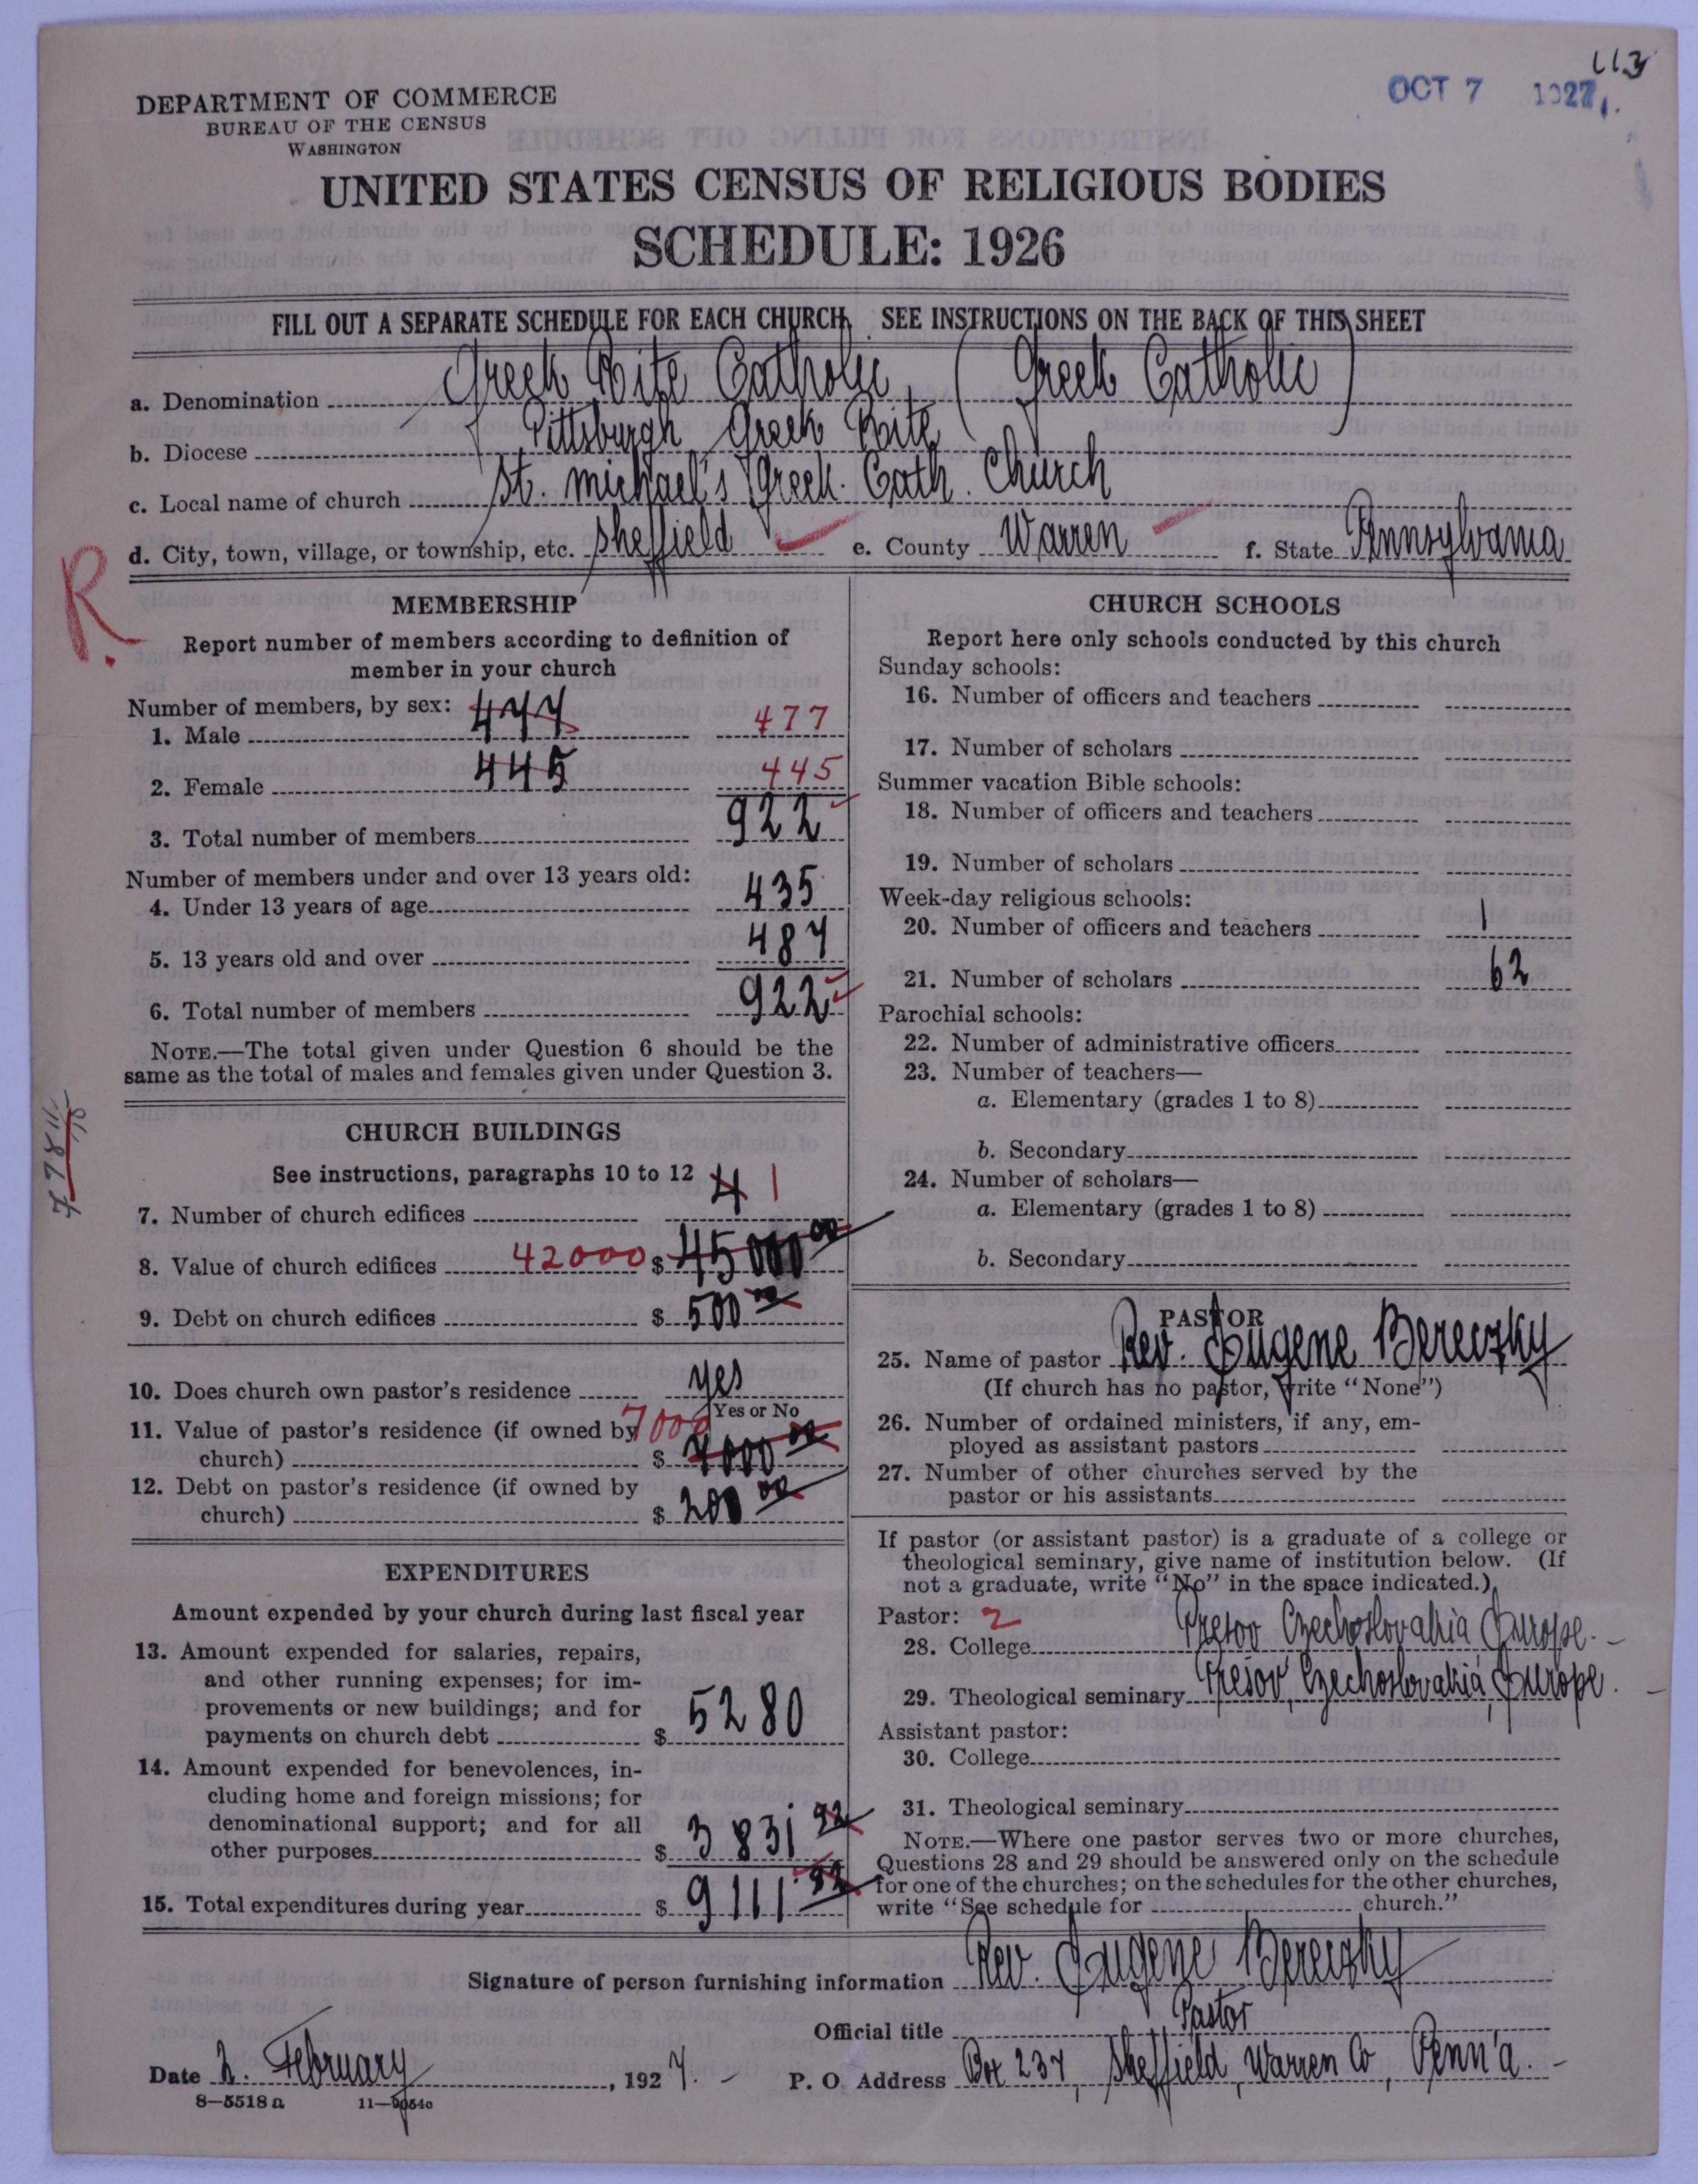 113
OCT 7 1927
DEPARTMENT OF COMMERCE
BUREAU OF THE CENSUS
WASHINGTON
UNITED STATES CENSUS OF RELIGIOUS BODIES
SCHEDULE: 1926
FILL OUT A SEPARATE SCHEDULE FOR EACH CHURCH. SEE INSTRUCTIONS ON THE BACK OF THIS SHEET
a. Denomination Greek Rite Catholic (Greek Catholic)
b. Diocese Pittsburgh Greek Rite
c. Local name of church St. Michael's Greek. Cath. Church
d. City, town, village, or township, etc. Sheffield e. County Warren f. State Pennsylvania
R.
MEMBERSHIP
Report number of members according to definition of
member in your church
Number of members, by sex:
1. Male 477 477
2. Female 445 445
3. Total number of members 922
Number of members under and over 13 years old:
4. Under 13 years of age 435
5. 13 years old and over 487
6. Total number of members 922
NOTE.—The total given under Question 6 should be the
same as the total of males and females given under Question 3.
CHURCH BUILDINGS
See instructions, paragraphs 10 to 12
7. Number of church edifices 4 1
8. Value of church edifices 42000 $ 45000 00
9. Debt on church edifices $ 500 00
10. Does church own pastor's residence yes
Yes or No
11. Value of pastor's residence (if owned by 7000
church) $ 7000 00
12. Debt on pastor's residence (if owned by
church) $ 200 00
EXPENDITURES
Amount expended by your church during last fiscal year
13. Amount expended for salaries, repairs,
and other running expenses; for im-
provements or new buildings; and for
payments on church debt $ 5280
14. Amount expended for benevolences, in-
cluding home and foreign missions; for
denominational support; and for all
other purposes $ 3831 92
15. Total expenditures during year $ 9111 92
CHURCH SCHOOLS
Report here only schools conducted by this church
Sunday schools:
16. Number of officers and teachers
17. Number of scholars
Summer vacation Bible schools:
18. Number of officers and teachers
19. Number of scholars
Week-day religious schools:
20. Number of officers and teachers 1
21. Number of scholars 62
Parochial schools:
22. Number of administrative officers
23. Number of teachers—
a. Elementary (grades 1 to 8)
b. Secondary
24. Number of scholars—
a. Elementary (grades 1 to 8)
b. Secondary
PASTOR
25. Name of pastor Rev. Eugene Bereczky
(If church has no pastor, write "None")
26. Number of ordained ministers, if any, em-
ployed as assistant pastors
27. Number of other churches served by the
pastor or his assistants
If pastor (or assistant pastor) is a graduate of a college or
theological seminary, give name of institution below. (If
not a graduate, write "No" in the space indicated.)
Pastor: 2
28. College Presov Czechoslovakia Europe.
29. Theological seminary Presov, Czechoslovakia, Europe.
Assistant pastor:
30. College
31. Theological seminary
NOTE.—Where one pastor serves two or more churches,
Questions 28 and 29 should be answered only on the schedule
for one of the churches; on the schedules for the other churches,
write "See schedule for church."
Signature of person furnishing information Rev. Eugene Bereczky
Official title Pastor
Date 2. February, 1927. P. O. Address Box 237, Sheffield, Warren Co, Penn'a.
8—5518 a